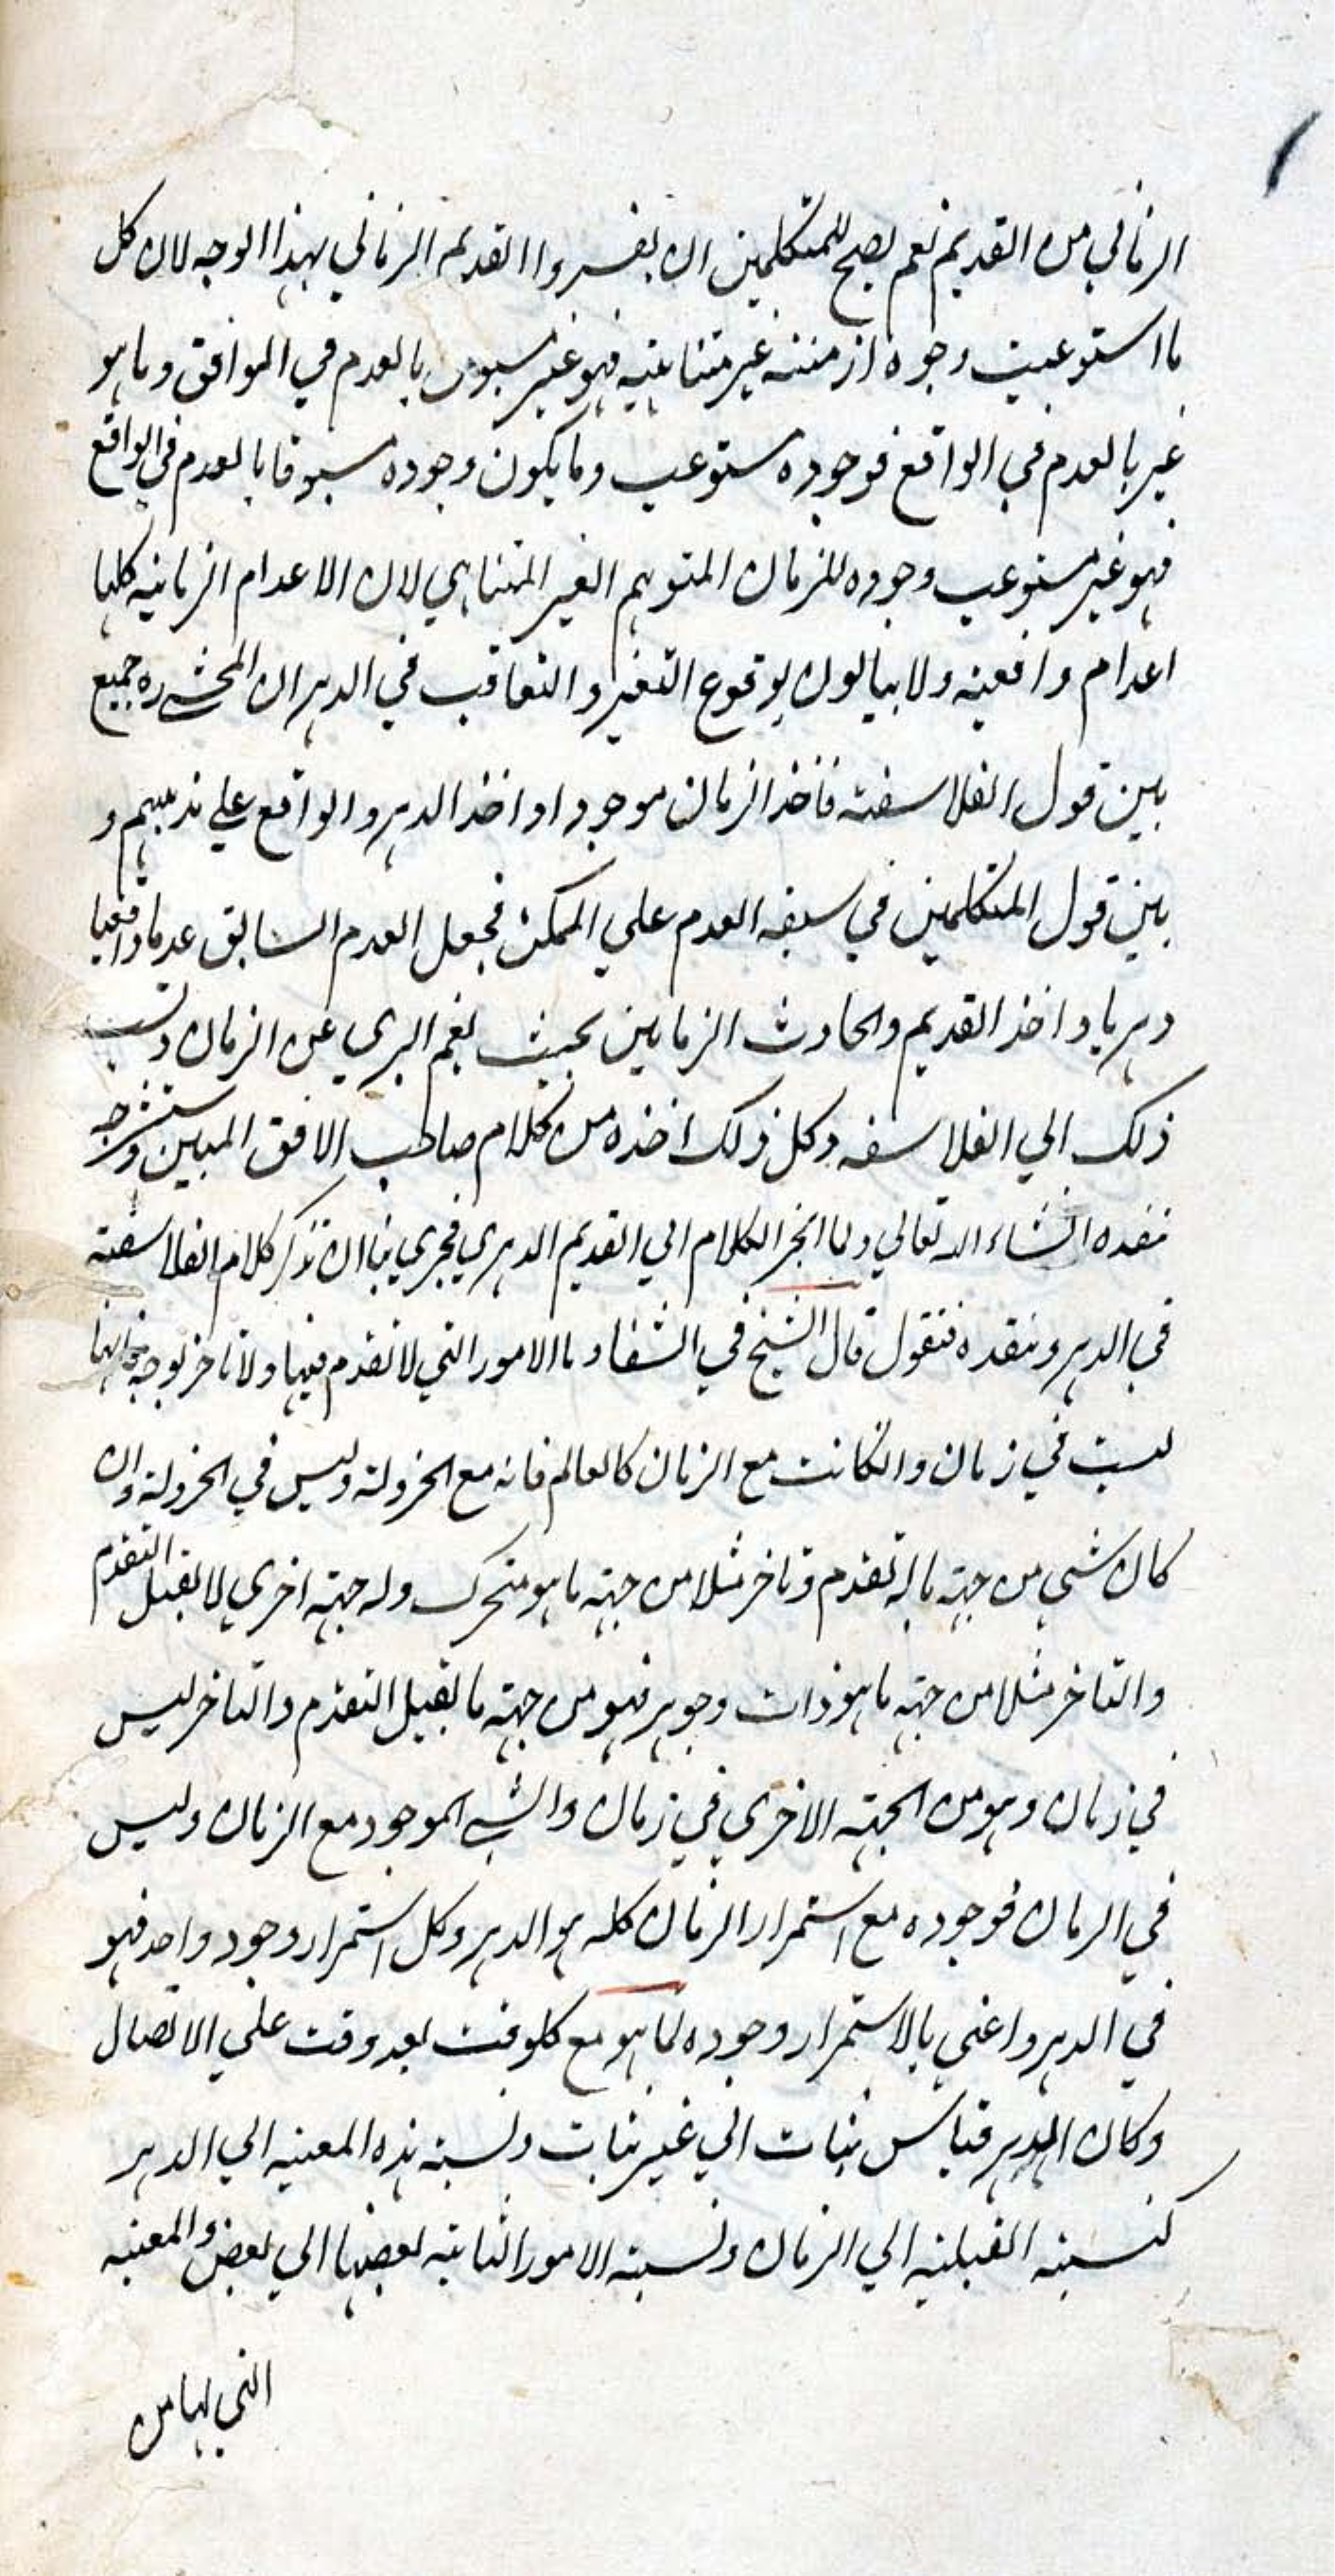 الزماني من القديم نعم يصح للمتكلمين ان يفسروا القديم الزماني بهذا الوجه لان كل
ما استوعبت وجوده ازمنة غير متناهية فهو غير مسبوق بالعدم في الموافق وما هو
غير بالعدم في الواقع فوجوده مستوعب وما يكون وجوده مسبوقا بالعدم في الواقع
فهو غير مستوعب وجوده للزمان المتوهم الغير المتناهي لان الاعدام الزمانية كلها
اعدام واقعية ولا يبالون بوقوع التغير والتعاقب في الدهر ان المحشى ره جميع
بين قول الفلاسفة فاخذ الزمان موجودا واخذ الدهر والواقع على مذهبهم و
بين قول المتكلمين في سبقه العدم على الممكن فجعل العدم السابق عدما واقعيا
دهريا واخذ القديم والحادث الزمانين بحيث يعم البري عن الزمان ونسب
ذلك الي الفلاسفه وكل ذلك اخذه من كلام صاحب الافق المبين وسنشرحه
ننقده انشاء الله تعالي ولما انجر الكلام الي القديم الدهري فحري بنا ان نذكر كلام الفلاسفة
في الدهر وننقده فنقول قال الشيخ في الشفا وما الامور التي لا تقدم فيها ولا تاخر بوجه فانها
ليست في زمان وانكانت مع الزمان كالعالم فانه مع الخردلة وليس في الخردلة وان
كان شي من جهة ما له تقدم وتاخر مثلا من جهة ما هو متحرك وله جهة اخري لا يقبل التقدم
والتاخر مثلا من جهة ما هو ذات وجوهر فهو من جهة ما يقبل التقدم والتاخر ليس
في زمان وهو من الجهة الاخري في زمان والشي الموجود مع الزمان وليس
في الزمان فوجوده مع استمرار الزمان كله هو الدهر وكل استمرار وجود واحد فهو
في الدهر واعني بالاستمرار وجوده كما هو مع كلوقت بعد وقت علي الاتصال
وكان الدهر قياس ثبات الي غير ثبات ونسبة هذه المعية الي الدهر
كنسبة القبلية الي الزمان ونسبة الامور الثابتة بعضها الي بعض والمعية
التي لها من